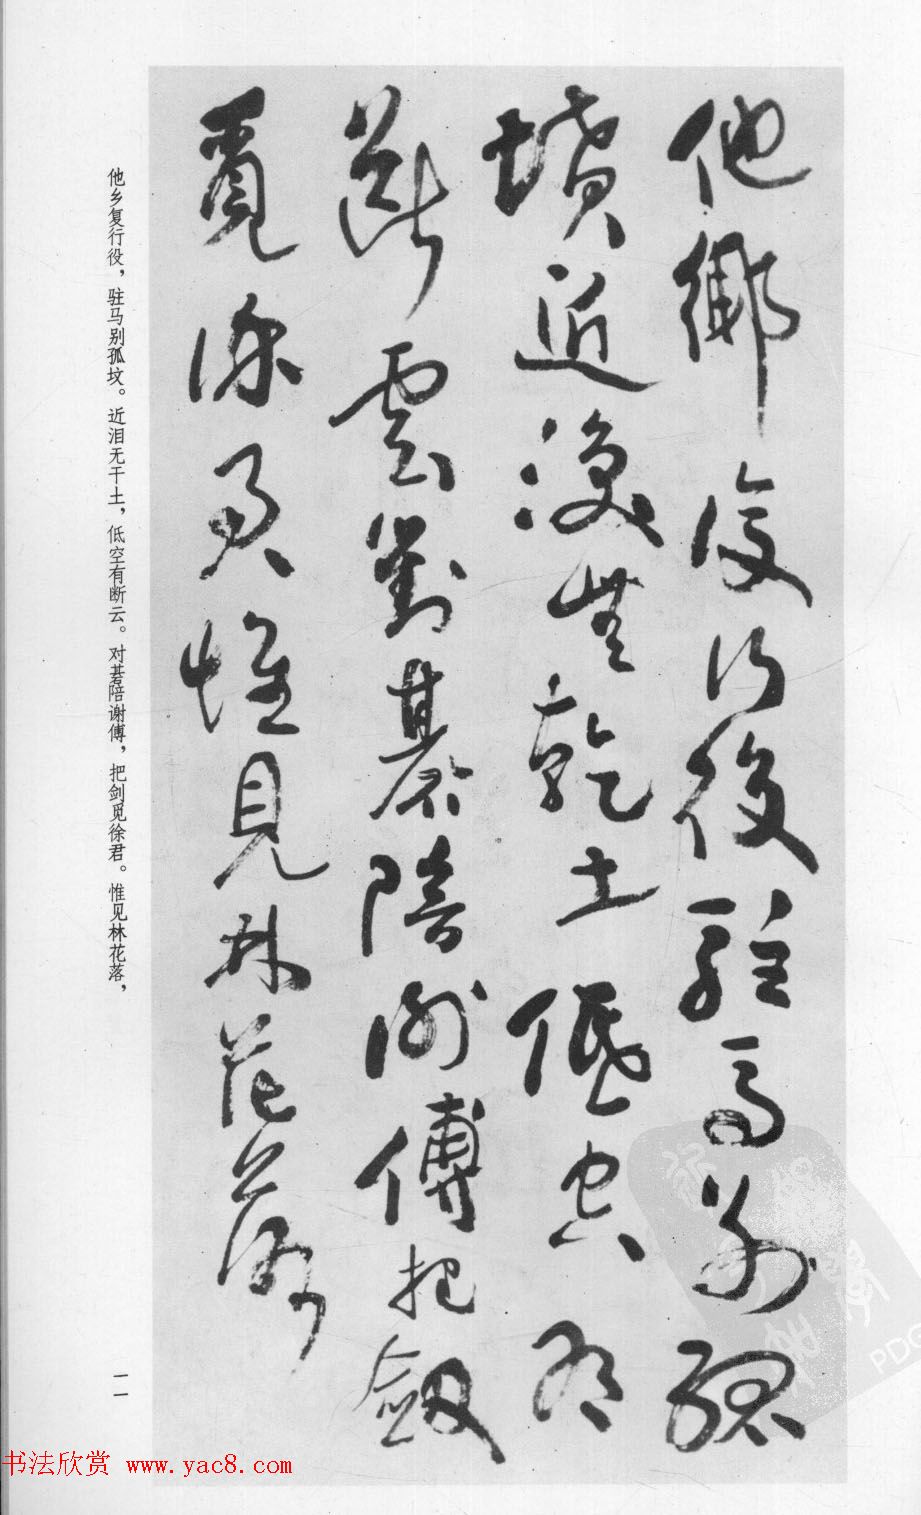 他鄉復行役駐馬別孤
墳近淚無乾土低空有
斷雲對碁陪謝傅把劍
覓徐君惟見林花落
他乡复行役，驻马别孤坟。近泪无干土，低空有断云。对碁陪谢傅，把剑觅徐君。惟见林花落，
一一
PDG
书法欣赏 www.yac8.com